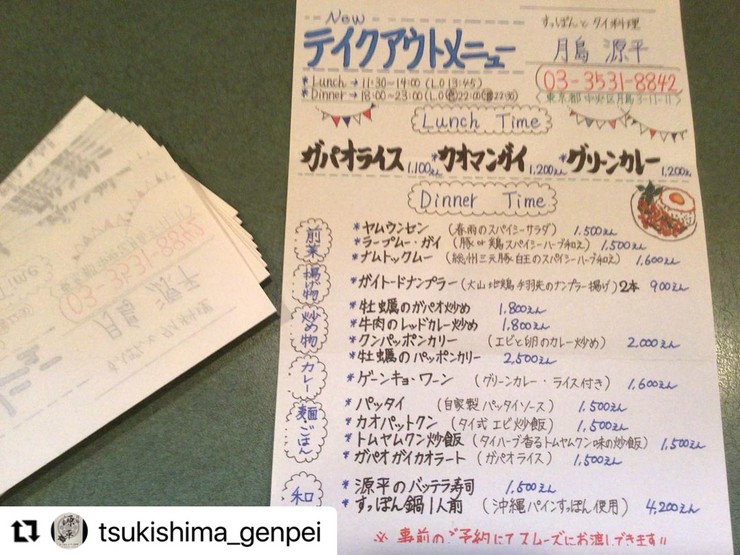 New
テイクアウトメニュー
すっぽんとタイ料理
月島 源平
03-3531-8842
〈東京都中央区月島3-11-11〉
* Lunch → 11:30~14:00 (L.O 13:45)
* Dinner → 18:00~23:00 (L.O 22:00 22:30)
Lunch Time
ガパオライス 1,100えん *カオマンガイ 1,200えん *グリーンカレー 1,200えん
Dinner Time
前菜
* ヤムウンセン (春雨のスパイシーサラダ) 1,500えん
* ラープムー・ガイ (豚or鶏スパイシーハーブ和え) 1,500えん
* ナムトックムー (総州三元豚白王のスパイシーハーブ和え) 1,600えん
揚げ物
* ガイトードナンプラー (大山地鶏手羽先のナンプラー揚げ) 2本 900えん
炒め物
* 牡蠣のガパオ炒め 1,800えん
* 牛肉のレッドカレー炒め 1,800えん
* クンパッポンカリー (エビと卵のカレー炒め) 2,000えん
* 牡蠣のパッポンカリー 2,500えん
カレー
* ゲーンキョ・ワーン (グリーンカレー・ライス付き) 1,600えん
麺・ごはん
* パッタイ (自家製パッタイソース) 1,500えん
* カオパットクン (タイ式エビ炒飯) 1,500えん
* トムヤムクン炒飯 (タイハーブ香るトムヤムクン味の炒飯) 1,500えん
* ガパオガイカオラート (ガパオライス) 1,500えん
和
* 源平のバッテラ寿司 1,500えん
* すっぽん鍋1人前 (沖縄パインすっぽん使用) 4,200えん
※ 事前のご予約にてスムーズにお渡しできます!!
Time
03-3531-8842
月島 源平
すっぽんとタイ料理
tsukishima_genpei